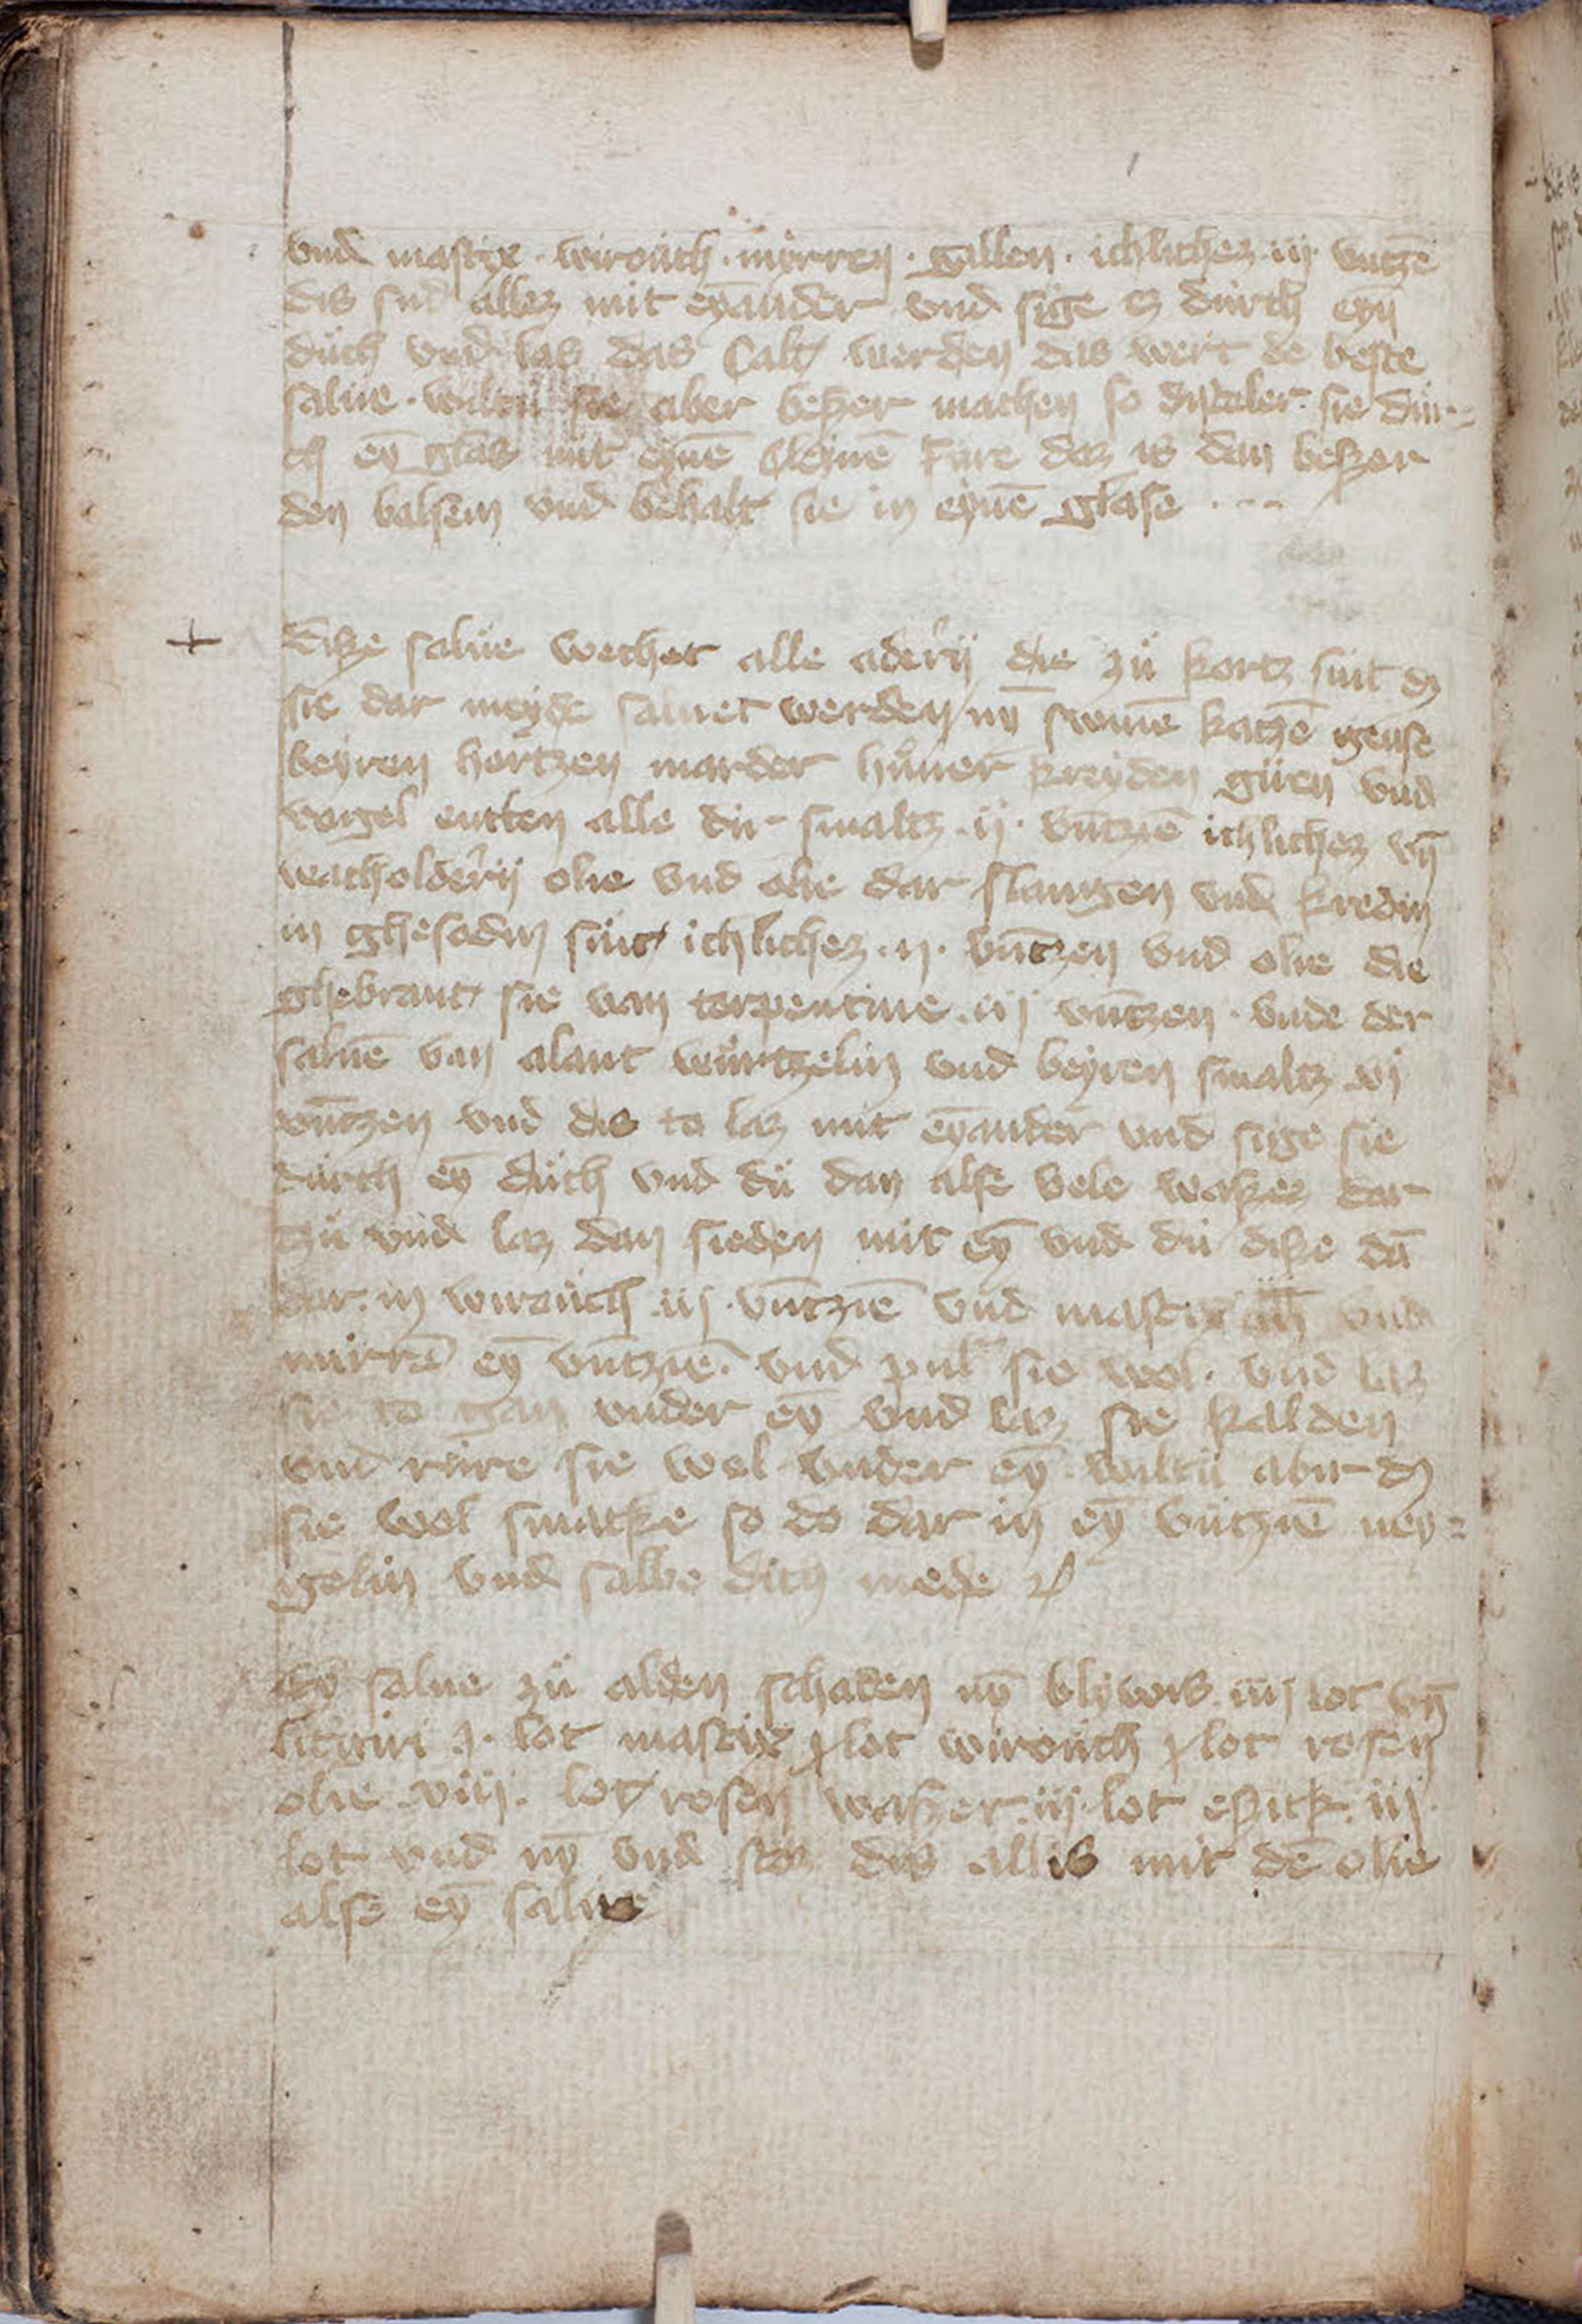 vnd mastix · wirouch · mirren · gallen · ichlichez · iij · vntzē
dis sud allez mit eyander vnd sige es durch eyn̄
duch vnd las das calt werden das wert de beste
salue · wiltu sie aber beszer machen so distoler sie dur=
ch ey̅ glas mit eynē cleynē fure daz is dan beszer
den balsem vnd behalt sie in eynē glase
Disze salue wechet alle adern die zu kortz sint
sie dar meyde saluet werden ny̅ swinē katzē gense
beyren hertzen marder huner kreyden guen vnd
vogel entten alle dir smaltz · ij · vntziē ichlichez vn̄
wacholdern olie vnd olie dar slangen vnd kredin
in ghesodin sint ichlichez · ij · vntzen vnd olie die
ghebrant sie van terpentine · iij vntzen · vnde der
saluē van alant wurtzelin vnd beyren smaltz vj
vntzen vnd dis to laz mit eyander vnd sige sie
durch ey̅ duch vnd du dan alse vele waszes dar
zu vnd laz dan sieden mit ey̅ vnd du disze dā
dar in wirouch iij · vntziē vnd mastix vnd
mirrē ey̅ vntziē · vnd pul sie wol · vnd laz
sie to gan vnder ey̅ vnd laz sie kalden
vnd rure sie wol vnder ey̅ · wiltu abir
sie wol smacke so do dar in ey̅ vntziē ney=
gelin vnd salbe dich mede
Ey̅ salue zu alden schaden ny̅ blywis iiij lot vn̄
lot mastix lot wirouch lot rosen
olie · viij · lot rosen waszer · iij · lot eszick · iij
lot vnd ny̅ vnd stos dis allis mit dē olie
alse ey̅ salue